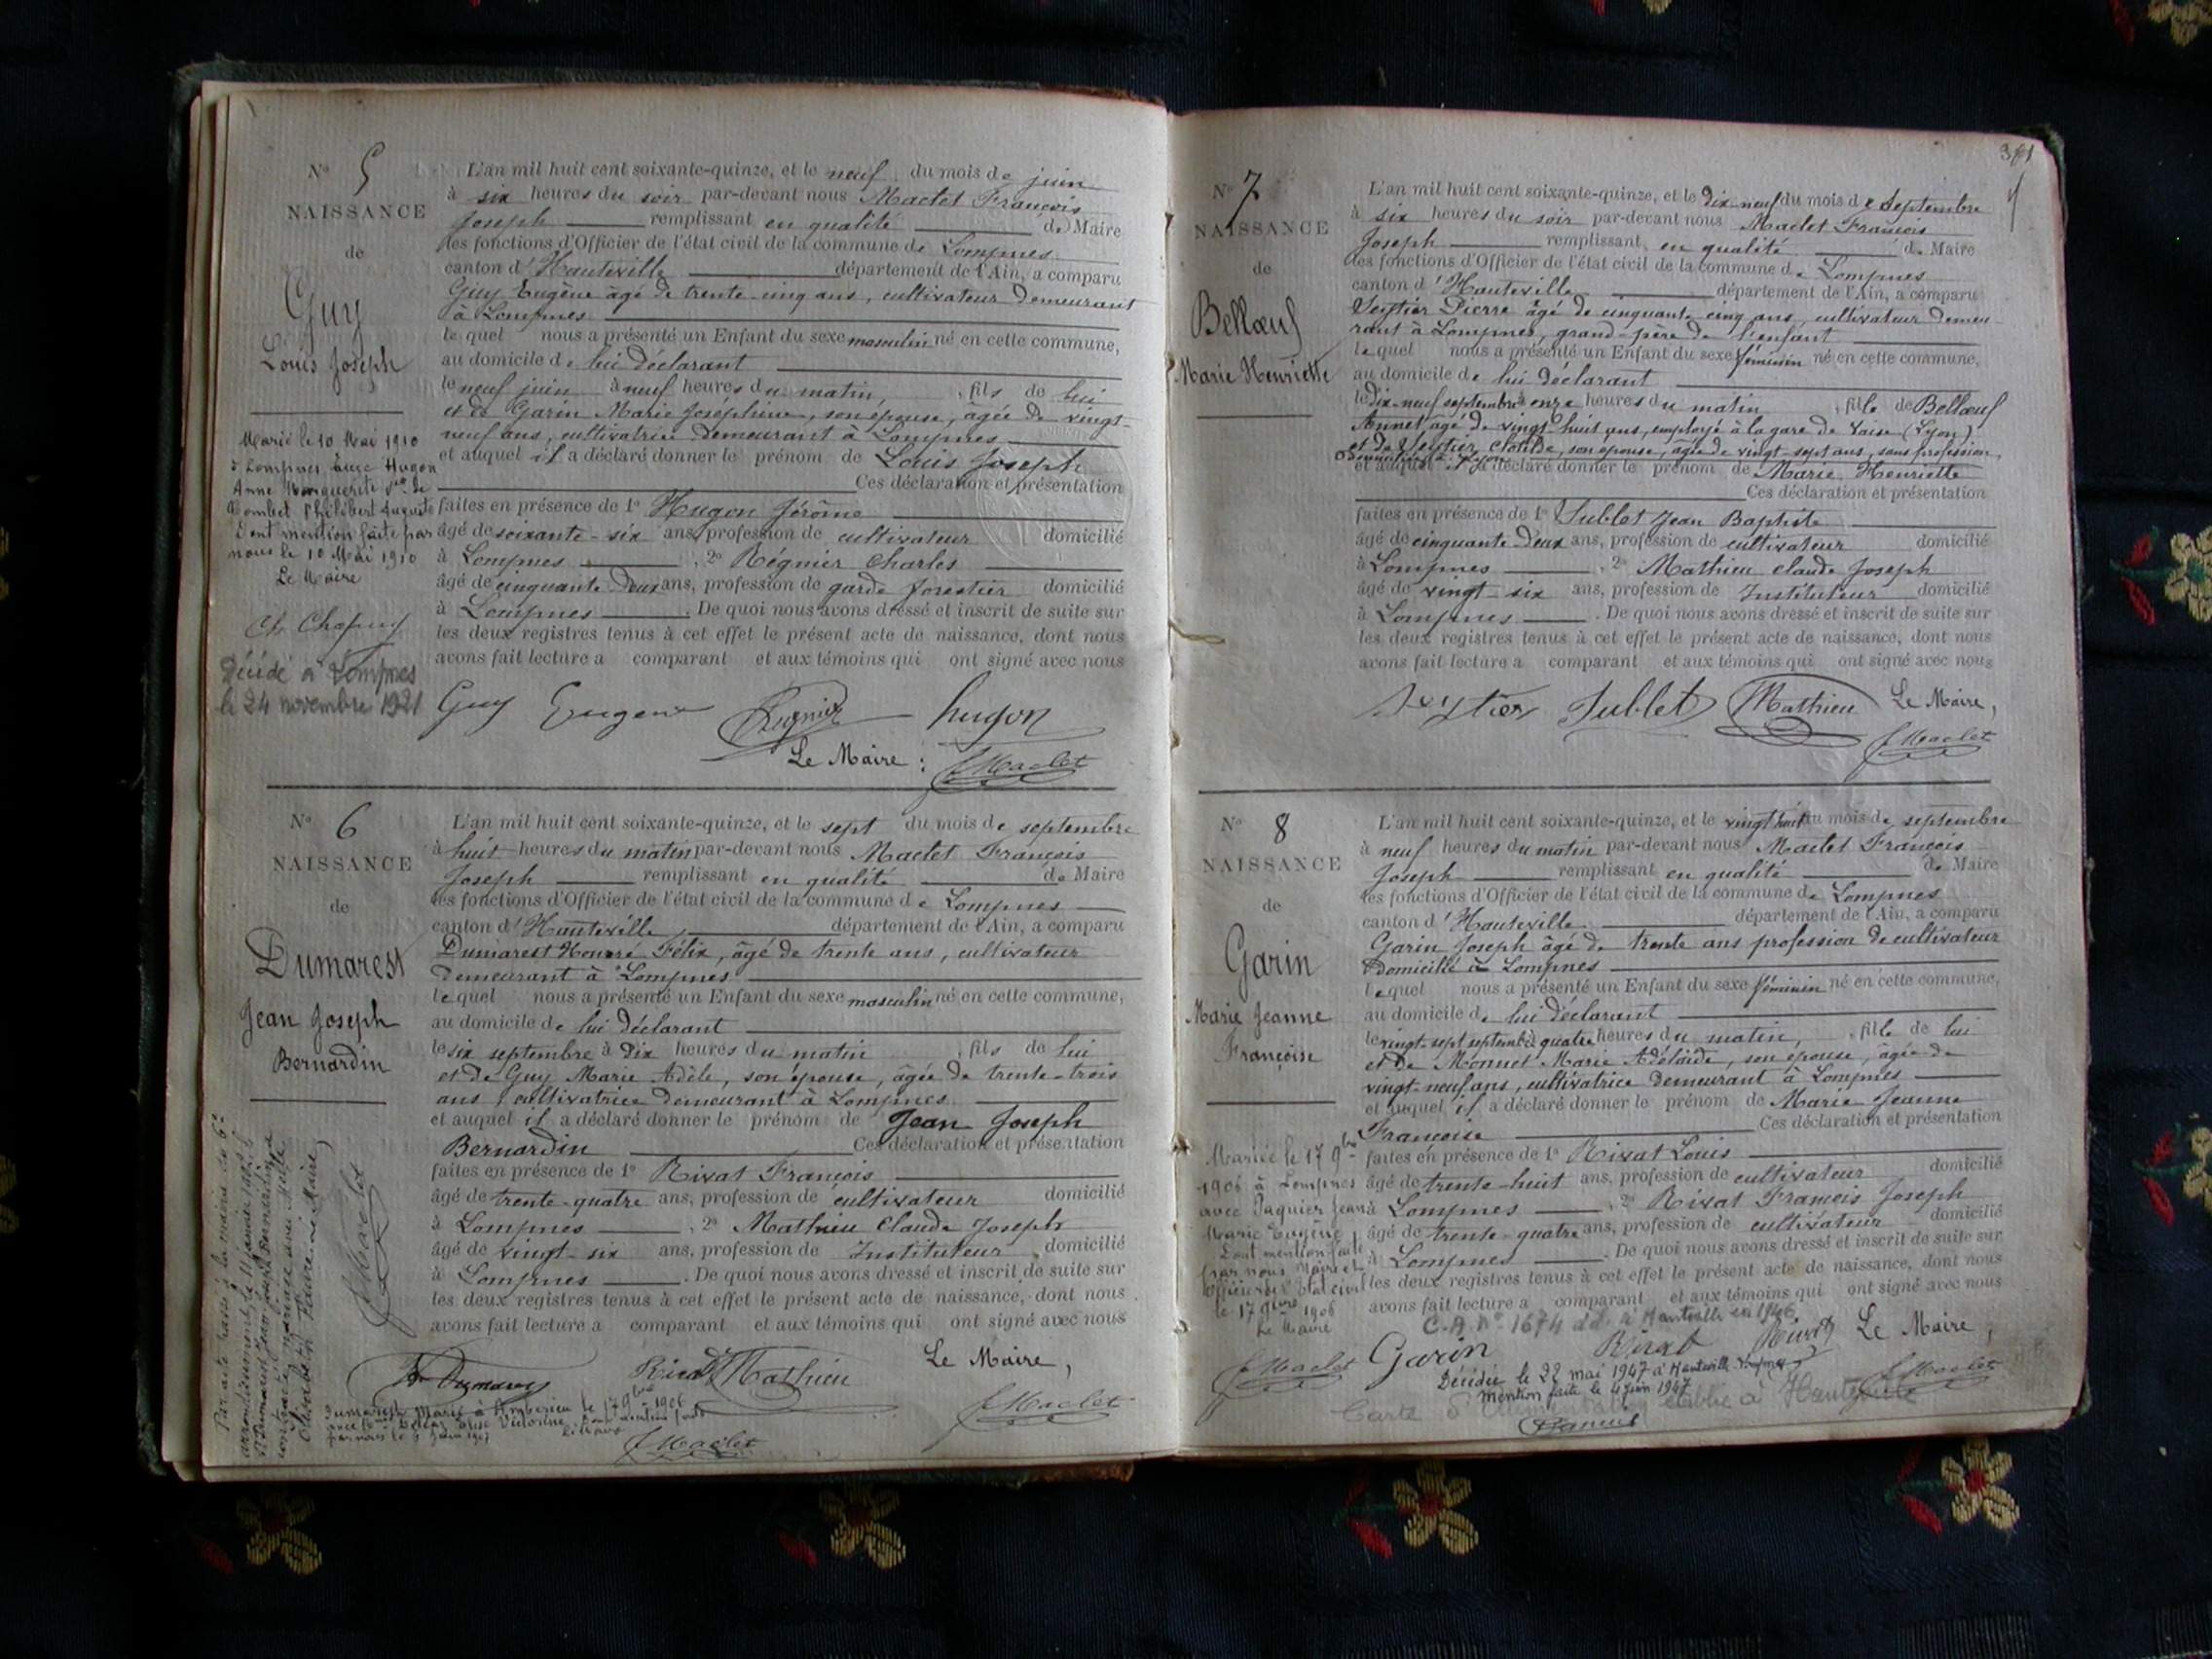 N° 5
NAISSANCE
de
Guy
Louis Joseph
Marié le 10 Mai 1910
à Lompnes avec Hugon
Anne Marguerite
Combet Philibert Auguste
Dont mention faite par
nous le 10 Mai 1910
Le Maire
Décédé à Lompnes
le 24 novembre 1921
L'an mil huit cent soixante-quinze, et le neuf du mois de juin
à six heures du soir par-devant nous Maclet François
Joseph remplissant en qualité de Maire
les fonctions d'Officier de l'état civil de la commune de Lompnes
canton d'Hauteville département de l'Ain, a comparu
Guy Eugène âgé de trente-cinq ans, cultivateur demeurant
à Lompnes
lequel nous a présenté un Enfant du sexe masculin né en cette commune,
au domicile de lui déclarant
le neuf juin à neuf heures du matin, fils de lui
et de Garin Marie Joséphine, son épouse, âgée de vingt-
neuf ans, cultivatrice demeurant à Lompnes
et auquel il a déclaré donner le prénom de Louis Joseph
Ces déclaration et présentation
faites en présence de 1° Hugon Jérôme
âgé de soixante-six ans, profession de cultivateur domicilié
à Lompnes, 2° Régnier Charles
âgé de cinquante-deux ans, profession de garde forestier domicilié
à Lompnes. De quoi nous avons dressé et inscrit de suite sur
les deux registres tenus à cet effet le présent acte de naissance, dont nous
avons fait lecture a comparant et aux témoins qui ont signé avec nous
Guy Eugene Regnier hugon
Le Maire : Maclet
N° 6
NAISSANCE
de
Dumarest
Jean Joseph
Bernardin
L'an mil huit cent soixante-quinze, et le sept du mois de septembre
à huit heures du matin par-devant nous Maclet François
Joseph remplissant en qualité de Maire
les fonctions d'Officier de l'état civil de la commune de Lompnes
canton d'Hauteville département de l'Ain, a comparu
Dumarest Honoré Félix, âgé de trente ans, cultivateur
demeurant à Lompnes
lequel nous a présenté un Enfant du sexe masculin né en cette commune,
au domicile de lui déclarant
le six septembre à dix heures du matin, fils de lui
et de Guy Marie Adèle, son épouse, âgée de trente-trois
ans, cultivatrice demeurant à Lompnes
et auquel il a déclaré donner le prénom de Jean Joseph
Bernardin Ces déclaration et présentation
faites en présence de 1° Rivat François
âgé de trente-quatre ans, profession de cultivateur domicilié
à Lompnes, 2° Mathieu Claude Joseph
âgé de vingt-six ans, profession de Instituteur domicilié
à Lompnes. De quoi nous avons dressé et inscrit de suite sur
les deux registres tenus à cet effet le présent acte de naissance, dont nous
avons fait lecture a comparant et aux témoins qui ont signé avec nous
Le Maire,
Dumarest Rivat Mathieu
Maclet
Maclet
N° 7
NAISSANCE
de
Bellœuf
Marie Henriette
L'an mil huit cent soixante-quinze, et le dix-neuf du mois de Septembre
à six heures du soir par-devant nous Maclet François
Joseph remplissant en qualité de Maire
les fonctions d'Officier de l'état civil de la commune de Lompnes
canton d'Hauteville département de l'Ain, a comparu
Seytier Pierre âgé de cinquante-cinq ans, cultivateur demeu-
rant à Lompnes, grand-père de l'enfant
lequel nous a présenté un Enfant du sexe féminin né en cette commune,
au domicile de lui déclarant
le dix-neuf septembre à onze heures du matin, fille de Bellœuf
Annet âgé de vingt-huit ans, employé à la gare de Vaise (Lyon)
et de Seytier Clotilde, son épouse, âgée de vingt-sept ans, sans profession,
demeurant à Lyon
et auquel il a déclaré donner le prénom de Marie Henriette
Ces déclaration et présentation
faites en présence de 1° Sublet Jean Baptiste
âgé de cinquante-deux ans, profession de cultivateur domicilié
à Lompnes, 2° Mathieu Claude Joseph
âgé de vingt-six ans, profession de Instituteur domicilié
à Lompnes. De quoi nous avons dressé et inscrit de suite sur
les deux registres tenus à cet effet le présent acte de naissance, dont nous
avons fait lecture a comparant et aux témoins qui ont signé avec nous
Seytier Sublet Mathieu Le Maire,
Maclet
N° 8
NAISSANCE
de
Garin
Marie Jeanne
Françoise
Mariée le 17 9bre
1906 à Lompnes
avec Paquier Jean
Marie Eugène,
Dont mention faite
par nous Maire et
Officier de l'Etat civil
le 17 9bre 1906
Le Maire
Maclet
L'an mil huit cent soixante-quinze, et le vingt-huit du mois de septembre
à neuf heures du matin par-devant nous Maclet François
Joseph remplissant en qualité de Maire
les fonctions d'Officier de l'état civil de la commune de Lompnes
canton d'Hauteville département de l'Ain, a comparu
Garin Joseph âgé de trente ans profession de cultivateur
domicilié à Lompnes
lequel nous a présenté un Enfant du sexe féminin né en cette commune,
au domicile de lui déclarant
le vingt-sept septembre à quatre heures du matin, fille de lui
et de Monnet Marie Adélaïde, son épouse, âgée de
vingt-neuf ans, cultivatrice demeurant à Lompnes
et auquel il a déclaré donner le prénom de Marie Jeanne
Françoise Ces déclaration et présentation
faites en présence de 1° Rivat Louis
âgé de trente-huit ans, profession de cultivateur domicilié
à Lompnes, 2° Rivat François Joseph
âgé de trente-quatre ans, profession de cultivateur domicilié
à Lompnes. De quoi nous avons dressé et inscrit de suite sur
les deux registres tenus à cet effet le présent acte de naissance, dont nous
avons fait lecture a comparant et aux témoins qui ont signé avec nous
C.A. N° 1674 à Hauteville en 1946
Garin Rivat Rivat Le Maire,
Maclet
Décédée le 22 mai 1947 à Hauteville-Lompnes
Mention faite le 4 juin 1947
Carte d'alimentation établie à Hauteville